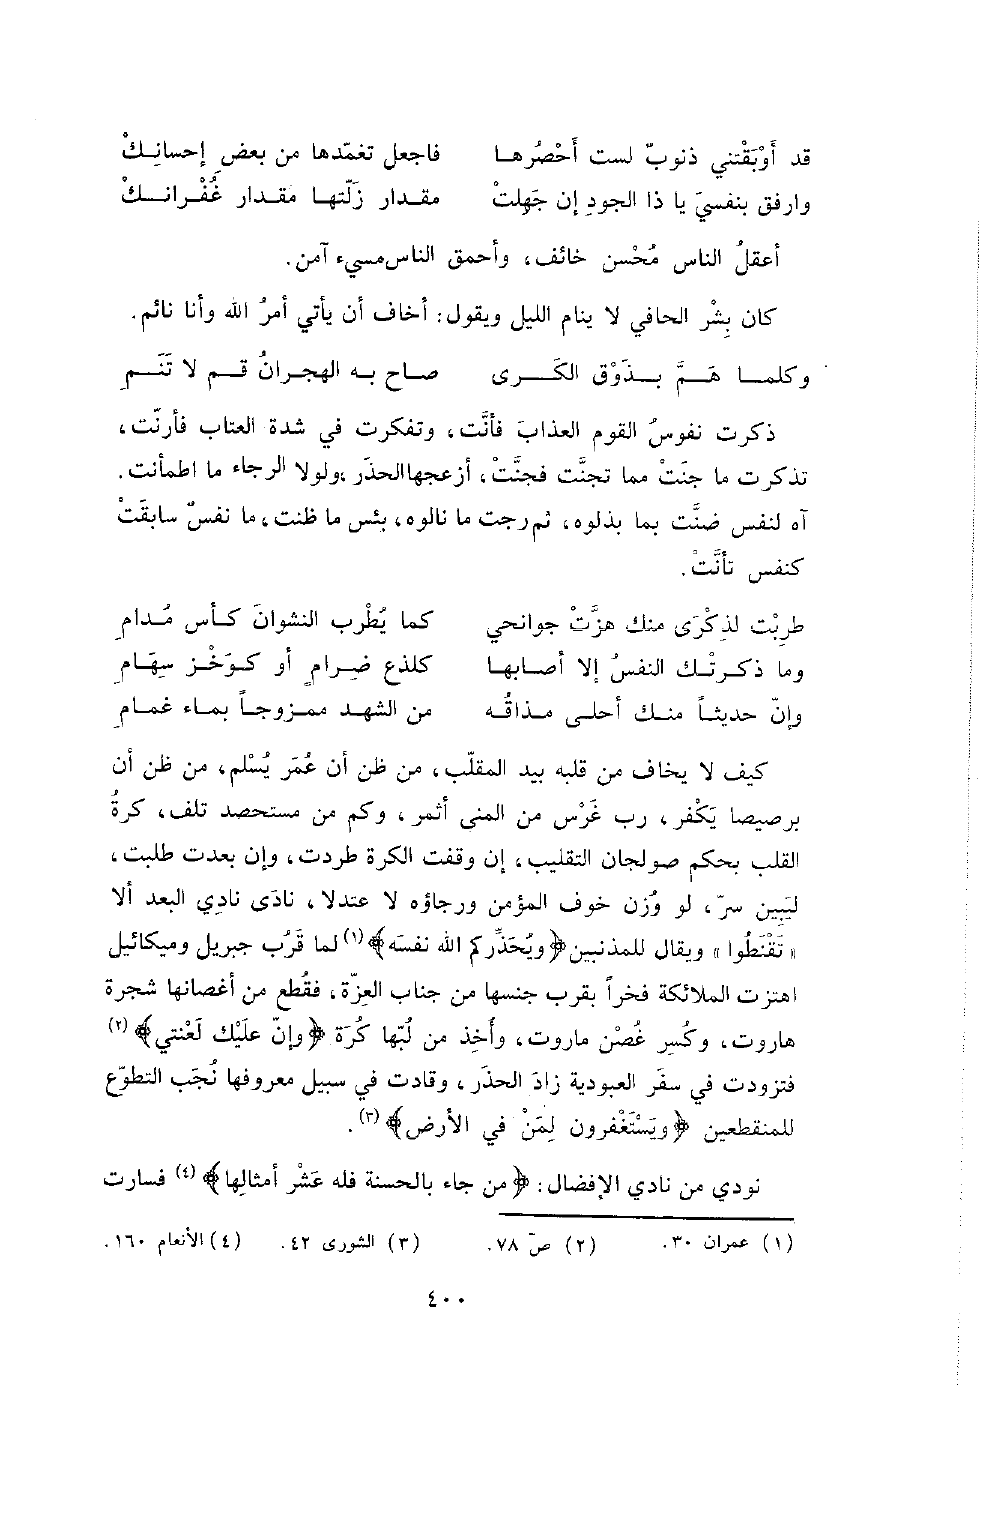 قد أَوْبَقْتني ذنوبٌ لست أَحْصُرُها فاجعل تغمّدها من بعضِ إحسانِـكْ
وارفق بنفسيَ يا ذا الجودِ إن جَهلتْ مقـدار زَلّتهـا مقـدار غُفْـرانــكْ
أعقلُ الناس مُحْسن خائف، وأحمق الناس مسيء آمن.
كان بِشْر الحافي لا ينام الليل ويقول: أخاف أن يأتي أمرُ الله وأنا نائم.
وكلمــا هَــمَّ بــذَوْق الكَــرى صـاح بـه الهجـرانُ قـم لا تَنَـمِ
ذكرت نفوسُ القوم العذابَ فأنَّت، وتفكرت في شدة العتاب فأرنّت،
تذكرت ما جنَتْ مما تجنَّت فجنَّتْ، أزعجها الحذَر، ولولا الرجاء ما اطمأنت.
آه لنفس ضنَّت بما بذلوه، ثم رجت ما نالوه، بئس ما ظنت، ما نفسٌ سابقَتْ
كنفس تأنَّتْ.
طربْت لذِكْرَى منك هزَّتْ جوانحي كما يُطْرب النشوانَ كـأس مُـدامِ
وما ذكـرتْـك النفسُ إلا أصـابهـا كلذع ضِـرامٍ أو كـوَخْـز سِهَـامِ
وإنّ حديثـاً منـك أحلـى مـذاقُـه من الشهـد ممـزوجـاً بمـاء غمـامِ
كيف لا يخاف من قلبه بيد المقلّب، من ظن أن عُمَر يُسْلم، من ظن أن
برصيصا يَكْفر، رب غَرْس من المنى أثمر، وكم من مستحصد تلف، كرةُ
القلب بحكم صولجان التقليب، إن وقفت الكرة طردت، وإن بعدت طلبت،
ليَبِين سرّ، لو وُزن خوف المؤمن ورجاؤه لا عتدلا، نادَى نادِي البعد ألا
« تَقْنَطُوا » ويقال للمذنبين ﴿ويُحَذِّركم الله نفسَه﴾(١) لما قَرُب جبريل وميكائيل
اهتزت الملائكة فخراً بقرب جنسها من جناب العِزّة، فقُطع من أغصانها شجرة
هاروت، وكُسِر غُصْن ماروت، وأُخِذ من لُبِّها كُرَة ﴿وإنّ علَيْك لَعْنتي﴾(٢)
فتزودت في سفَر العبودية زادَ الحذَر، وقادت في سبيل معروفها نُجُب التطوّع
للمنقطعين ﴿ويَسْتَغْفرون لِمَنْ في الأرض﴾(٣).
نودي من نادي الإفضال: ﴿من جاء بالحسنة فله عَشْر أمثالها﴾(٤) فسارت
(١) عمران ٣٠. (٢) صّ ٧٨. (٣) الشورى ٤٢. (٤) الأنعام ١٦٠.
٤٠٠